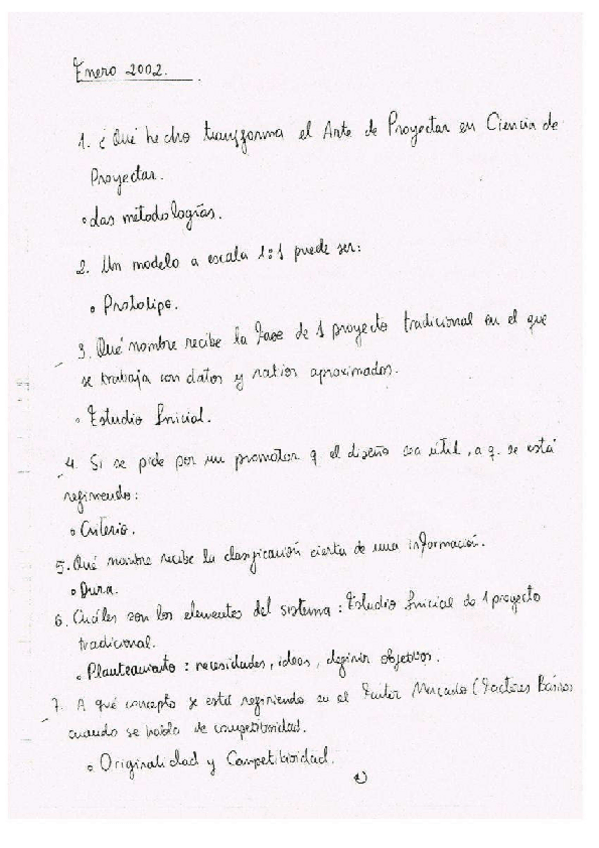 Enero 2002.
1. ¿Qué hecho transforma el Arte de Proyectar en Ciencia de
Proyectar.
• Las métodologías.
2. Un modelo a escala 1:1 puede ser:
• Prototipo.
3. Qué nombre recibe la fase de 1 proyecto tradicional en el que
se trabaja con datos y ratios aproximados.
• Estudio Inicial.
4. Si se pide por un promotor q el diseño sea útil, a q. se está
refiriendo:
• Criterio.
5. Qué nombre recibe la clasificación cierta de una información.
• Dura.
6. Cuáles son los elementos del sistema: Estudio Inicial de 1 proyecto
tradicional.
• Planteamiento: necesidades, ideas, definir objetivos.
7. A qué concepto se está refiriendo en el Factor Mercado (Factores Básicos
cuando se habla de competitividad.
• Originalidad y Competitividad.
1